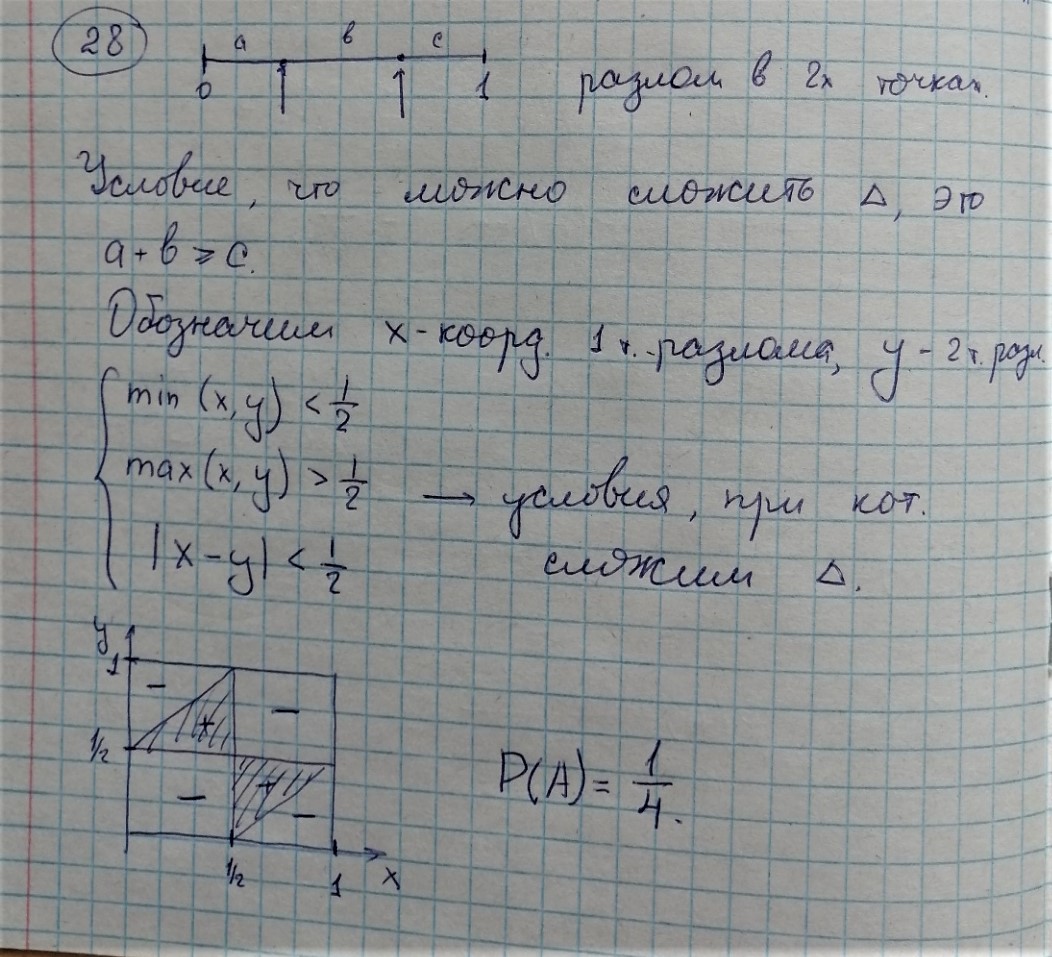 28
a в c
0 1 разлом в 2х точках.
Условие, что можно сложить Δ, это
a + в ≥ c.
Обозначим x - коорд. 1 т. разлома, y - 2 т. разл.
min (x, y) < 1/2
max (x, y) > 1/2 → условия, при кот.
|x - y| < 1/2 сложим Δ.
y
1
- + -
1/2
- + -
1/2 1 x
P(A) = 1/4.